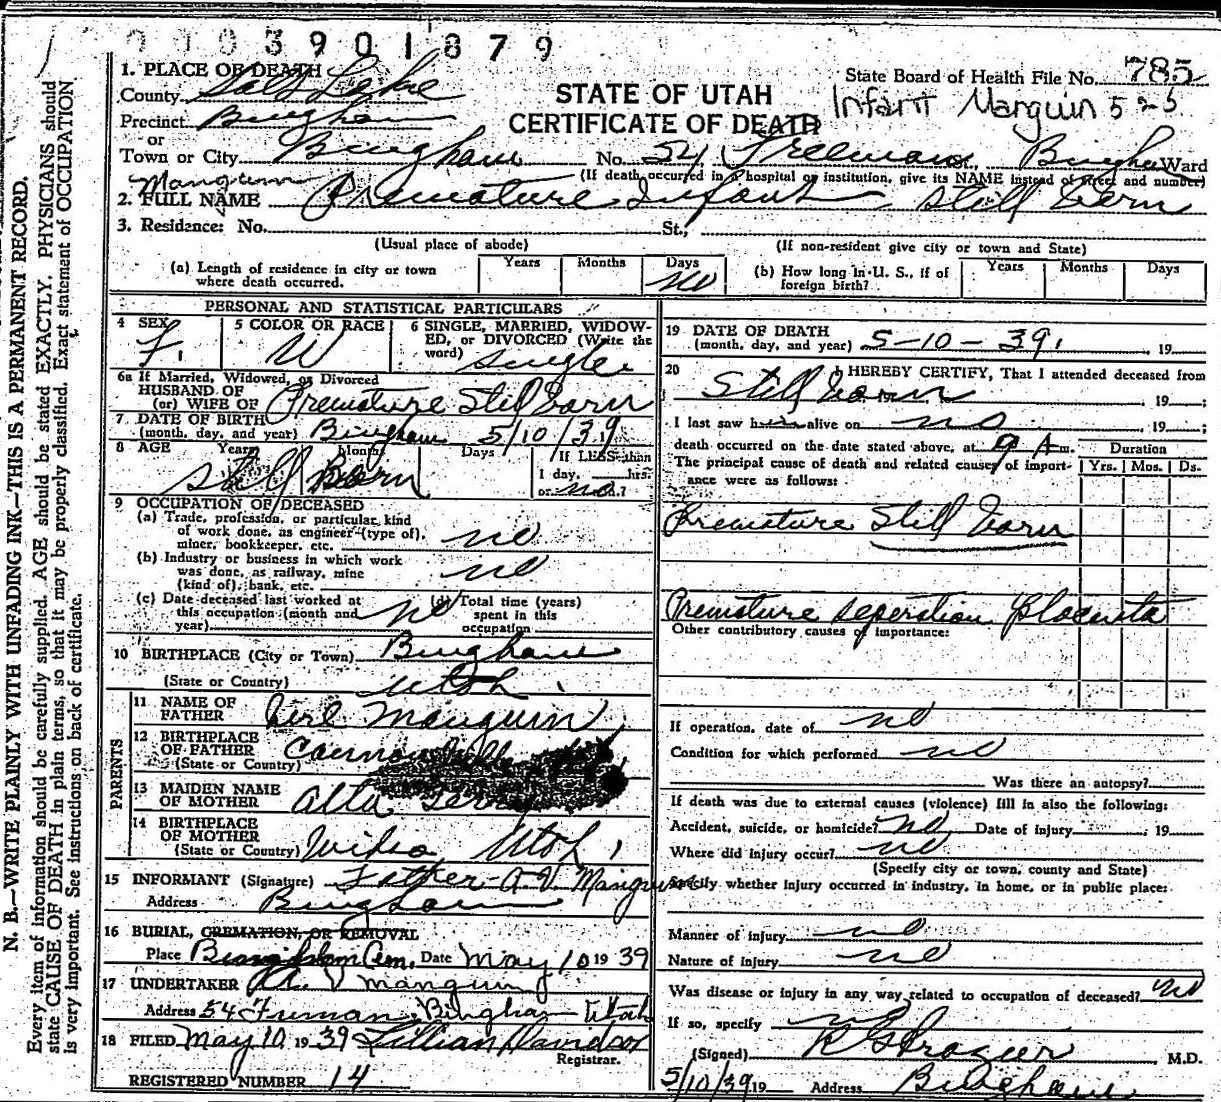 0 0 0 3 9 0 1 8 7 9
1. PLACE OF DEATH
County Salt Lake
State Board of Health File No. 785
STATE OF UTAH
CERTIFICATE OF DEATH
Infant Manguin 525
Precinct Bingham
or
Town or City Bingham No. 54 Freeman Bingham Ward
(If death occurred in a hospital or institution, give its NAME instead of street and number)
Mangum
2. FULL NAME Premature Infant Still Born
3. Residence: No. St.,
(Usual place of abode) (If non-resident give city or town and State)
(a) Length of residence in city or town where death occurred. Years Months Days no
(b) How long in U. S., if of foreign birth? Years Months Days
PERSONAL AND STATISTICAL PARTICULARS
4 SEX F.
5 COLOR OR RACE W
6 SINGLE, MARRIED, WIDOWED, or DIVORCED (Write the word) single
6a If Married, Widowed, or Divorced
HUSBAND OF
(or) WIFE OF Premature Still born
7 DATE OF BIRTH
(month, day, and year) Bingham 5/10/39
8 AGE Years Months Days If LESS than
1 day, hrs.
or no ?
Still Born
9 OCCUPATION OF DECEASED
(a) Trade, profession, or particular kind
of work done, as engineer (type of),
miner, bookkeeper, etc. no
(b) Industry or business in which work
was done, as railway, mine
(kind of), bank, etc. no
(c) Date deceased last worked at
this occupation (month and
year) no
(d) Total time (years)
spent in this
occupation
10 BIRTHPLACE (City or Town) Bingham
(State or Country) Utah
PARENTS
11 NAME OF
FATHER Mangum
12 BIRTHPLACE
OF FATHER
(State or Country)
13 MAIDEN NAME
OF MOTHER Alta
14 BIRTHPLACE
OF MOTHER
(State or Country) Utah
15 INFORMANT (Signature) Father - A. V. Mangum
Address Bingham
16 BURIAL, CREMATION, OR REMOVAL
Place Bingham Cem. Date May 10 1939
17 UNDERTAKER A. V Mangum
Address 54 Freman, Bingham Utah
18 FILED May 10, 1939 Lillian Davidson
Registrar.
REGISTERED NUMBER 14
19 DATE OF DEATH
(month, day, and year) 5-10-39. , 19
20 I HEREBY CERTIFY, That I attended deceased from
Still born , 19 ;
I last saw h alive on no , 19 ;
death occurred on the date stated above, at 9 A m.
The principal cause of death and related causes of importance were as follows:
Duration
Yrs. Mos. Ds.
Premature Still born
Premature seperation placenta
Other contributory causes of importance:
If operation, date of no
Condition for which performed no
Was there an autopsy?
If death was due to external causes (violence) fill in also the following:
Accident, suicide, or homicide? no Date of injury , 19
Where did injury occur? no
(Specify city or town, county and State)
Specify whether injury occurred in industry, in home, or in public place:
Manner of injury no
Nature of injury no
Was disease or injury in any way related to occupation of deceased? no
If so, specify no
(Signed) R G Frazier M.D.
5/10/39 19 Address Bingham
N. B.—WRITE PLAINLY WITH UNFADING INK—THIS IS A PERMANENT RECORD.
Every item of information should be carefully supplied. AGE should be stated EXACTLY. PHYSICIANS should
state CAUSE OF DEATH in plain terms, so that it may be properly classified. Exact statement of OCCUPATION
is very important. See instructions on back of certificate.